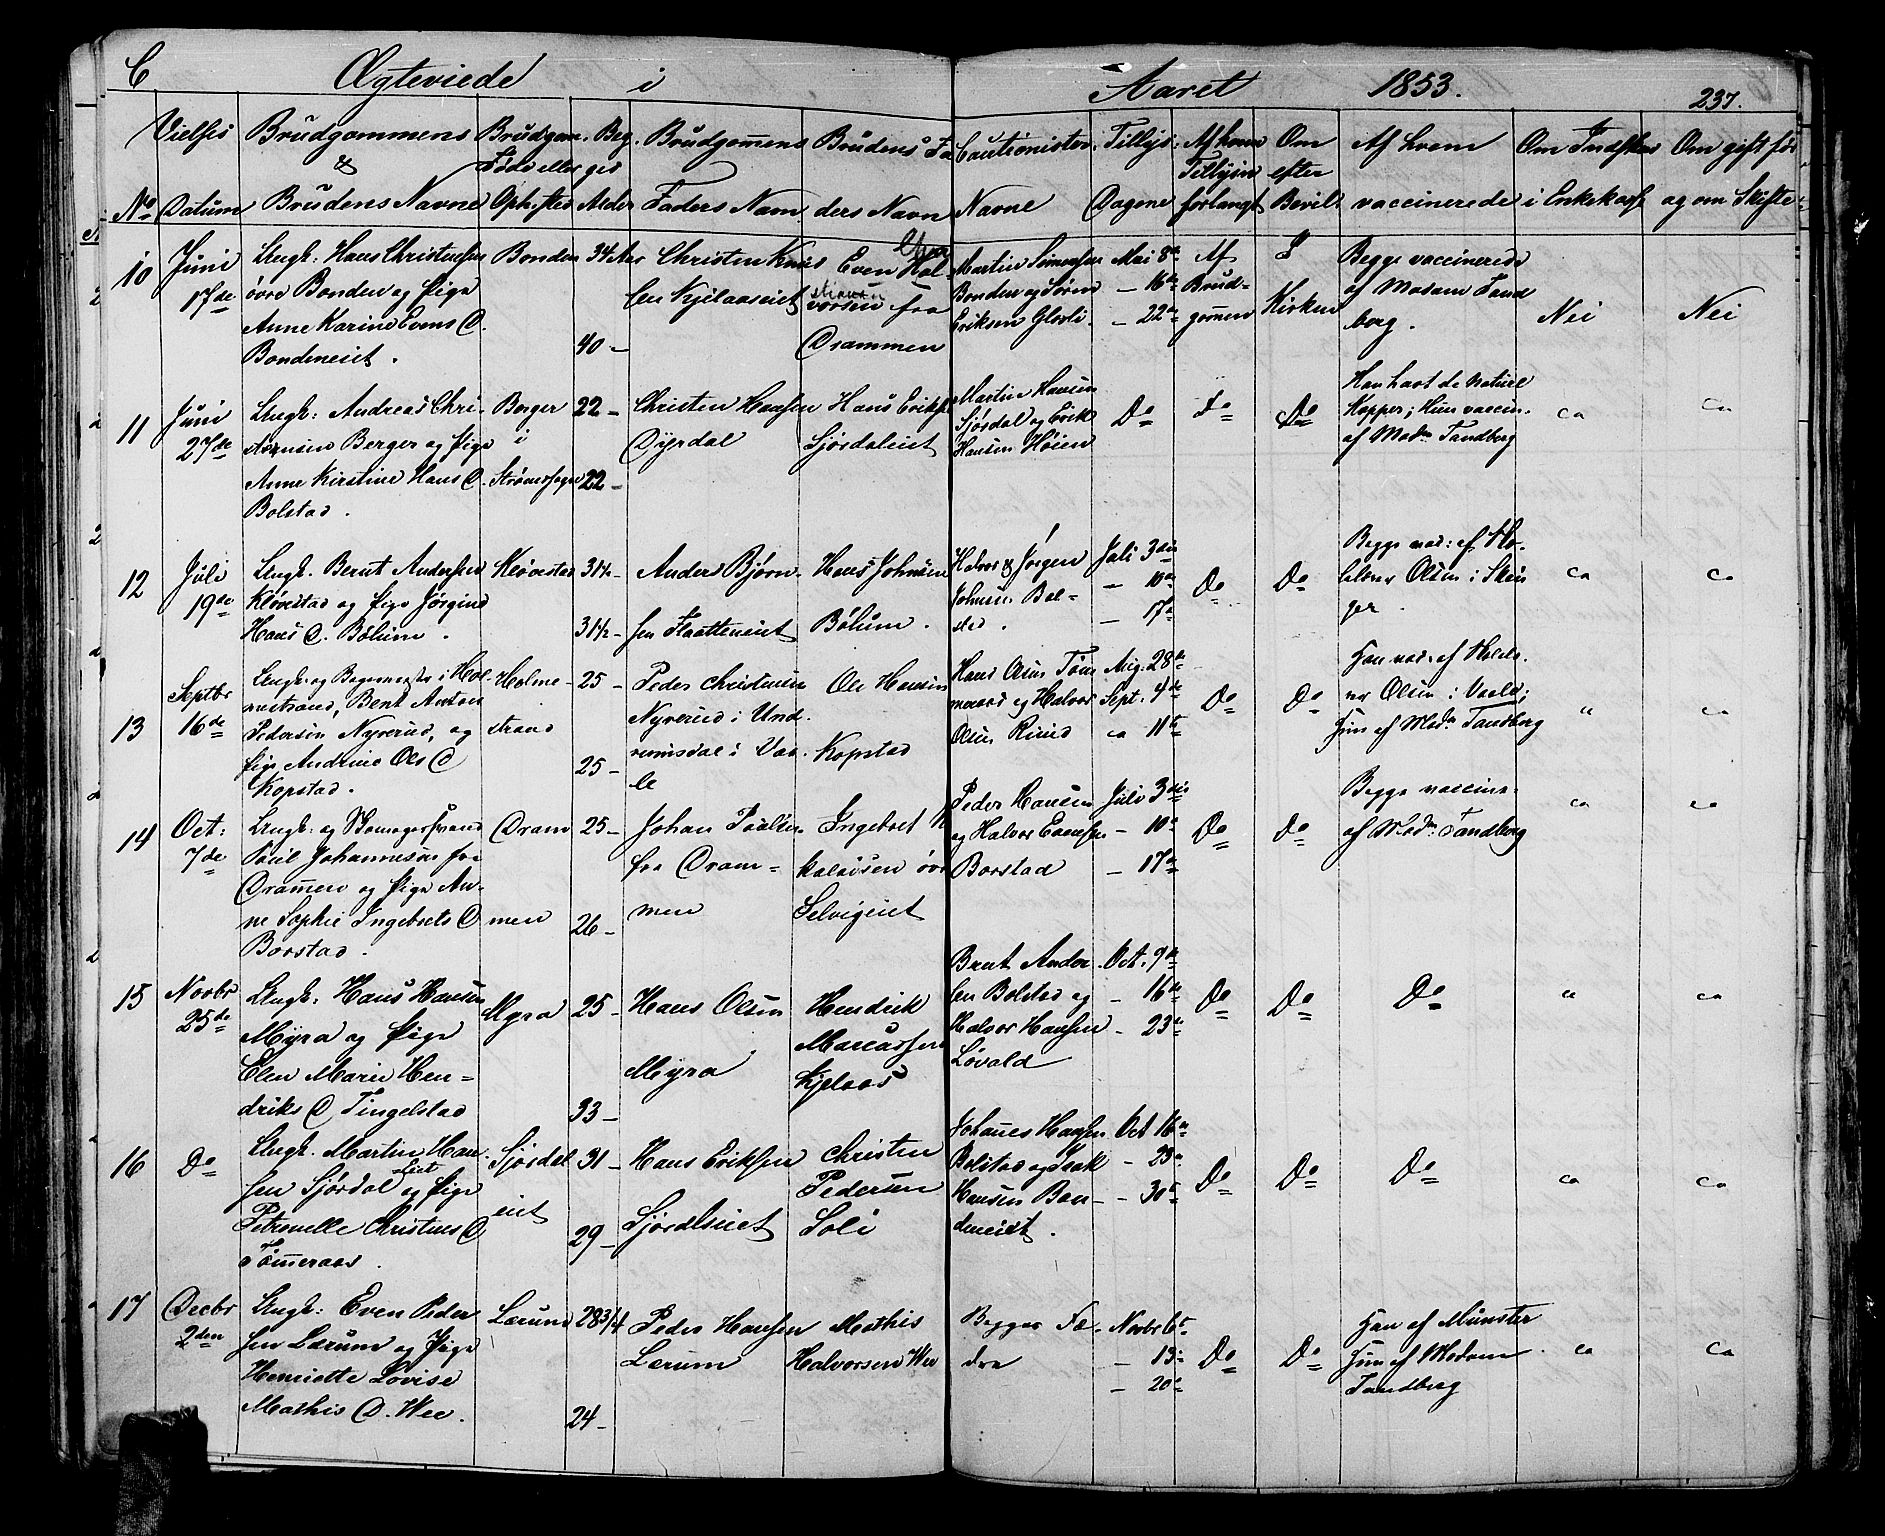 C Ægteviede i Aaret 1853. 237.
Vielses Brudgommens Brudgom. Beg. Brudgomens Brudens Fa Cautionister. Tillys: Af hvem Om Af hvem Om Indskud Om gift før
& Føde eller ges Tillysn efter
No Datum Brudens Navne Opholdsted Alder Faders Navn ders Navn Navne Dagene forlangt Bevil: vaccinerede i Enkekasse og om Skifte
10
Juni
17de
Ungk: Hans Christensen
øvre Bonden og Pige
Anne Karine Evens D.
Bondeneiet.
Bonden
34 Aar
40 -
Christen Knud
sen Kjilaaseiet
Even Hal-
vorsen fra
Drammen
Martin Simensen
Bonden og Søren
Eriksen Glosli.
Mai 8de
- 16de
- 22de
Af
Brud-
gomen
I
Kirken
Begge vaccinerede
af Madam Tand
berg.
Nei
Nei
11
Juni
27de
Ungk: Andreas Chri-
stensen Berger og Pige
Anne Kirstine Hans D.
Bolstad.
Berger
i
Strømssogn
22 -
22 -
Christen Hansen
Dyrdal
Hans Eriksen
Sjørdaleiet
Martin Hansen
Sjørdal og Erik
Hansen Høien
Do
Do
Do
Han havt de Naturl
Kopper; Hun vaccin.
af Madm Tandberg
12
Juli
19de
Ungk. Bernt Andersen
Kløvestad og Pige Jørgine
Hans D. Bølum.
Kløvestad
31½ -
31½ -
Anders Bjørn-
sen Flaatteneiet
Hans Johnsen
Bølum.
Halvor & Jørgen
Johnsen Bol-
stad.
Juli 3die
- 10de
- 17de
Do
Do
Begge vac: af Ho-
Olsen i Skou
ger.
13
Septbr
16de
Ungk. og Bagermester i Hol-
mestrand, Bent Anton
Pedersen Nyrerud, og
Pige Andrine Ols D
Kopstad.
Holme-
strand
25 -
25 -
Peder Christensen
Nyrerud i Und-
rumsdal i Vaa-
le
Ole Hansen
Kopstad
Hans Olsen Tøm
meraas og Halvor
Olsen Ruud
Aug. 28de
Sept. 4de
11te
Do
Do
Han vac: af
Olsen i Vaale;
Hun af Madm Tandberg
14
Oct:
7de
Ungk: og
Poul Johannesen fra
Dramen og Pige An-
ne Sophie Ingebrets D
Borstad.
Dram
men
25 -
26 -
Johan Poulsen
fra Dram-
men
Ingebret N
kolaisen øvr
Selvigeiet
Peder Hansen
og Halvor Evensen
Borstad
Juli 3die
- 10de
- 17de
Do
Do
Begge vaccine-
af Madm Tandberg
15
Novbr
25de
Ungk: Hans Hansen
Myra og Pige
Elen Marie Hen-
driks D Tingelstad
Myra
25 -
33 -
Hans Olsen
Myra
Hendrik
Marcussen
Kjelaas
Brent Ander
sen Bolstad og
Halvor Hansen
Løvald
Oct. 9de
- 16de
- 23de
Do
Do
Do
16
Do
Ungk. Martin Han-
sen Sjørdal eiet og Pige
Petronelle Christens D
Tømeraas.
Sjørdal
eiet
31 -
29 -
Hans Eriksen
Sjordlseiet
Christen
Pedersen
Soli
Johanes Hansen
Bolstad og Isak
Hansen Bon-
deneiet.
Oct 16de
- 23de
- 30te
Do
Do
Do
17
Decbr
2den
Ungk: Even Peder
sen Lærum og Pige
Henriette Lovise
Mathis D. Wee.
Lærum
28 3/4
24 -
Peder Hansen
Lærum
Mathis
Halvorsen Wee
Begges Fæ-
dre
Novbr 6te
- 13de
- 20de
Do
Do
Han af Münster
Hun af Madam
Tandberg